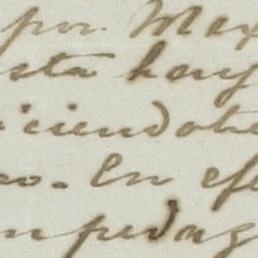 por Max
sta hay
iciendole
co. En efe
n pedaz